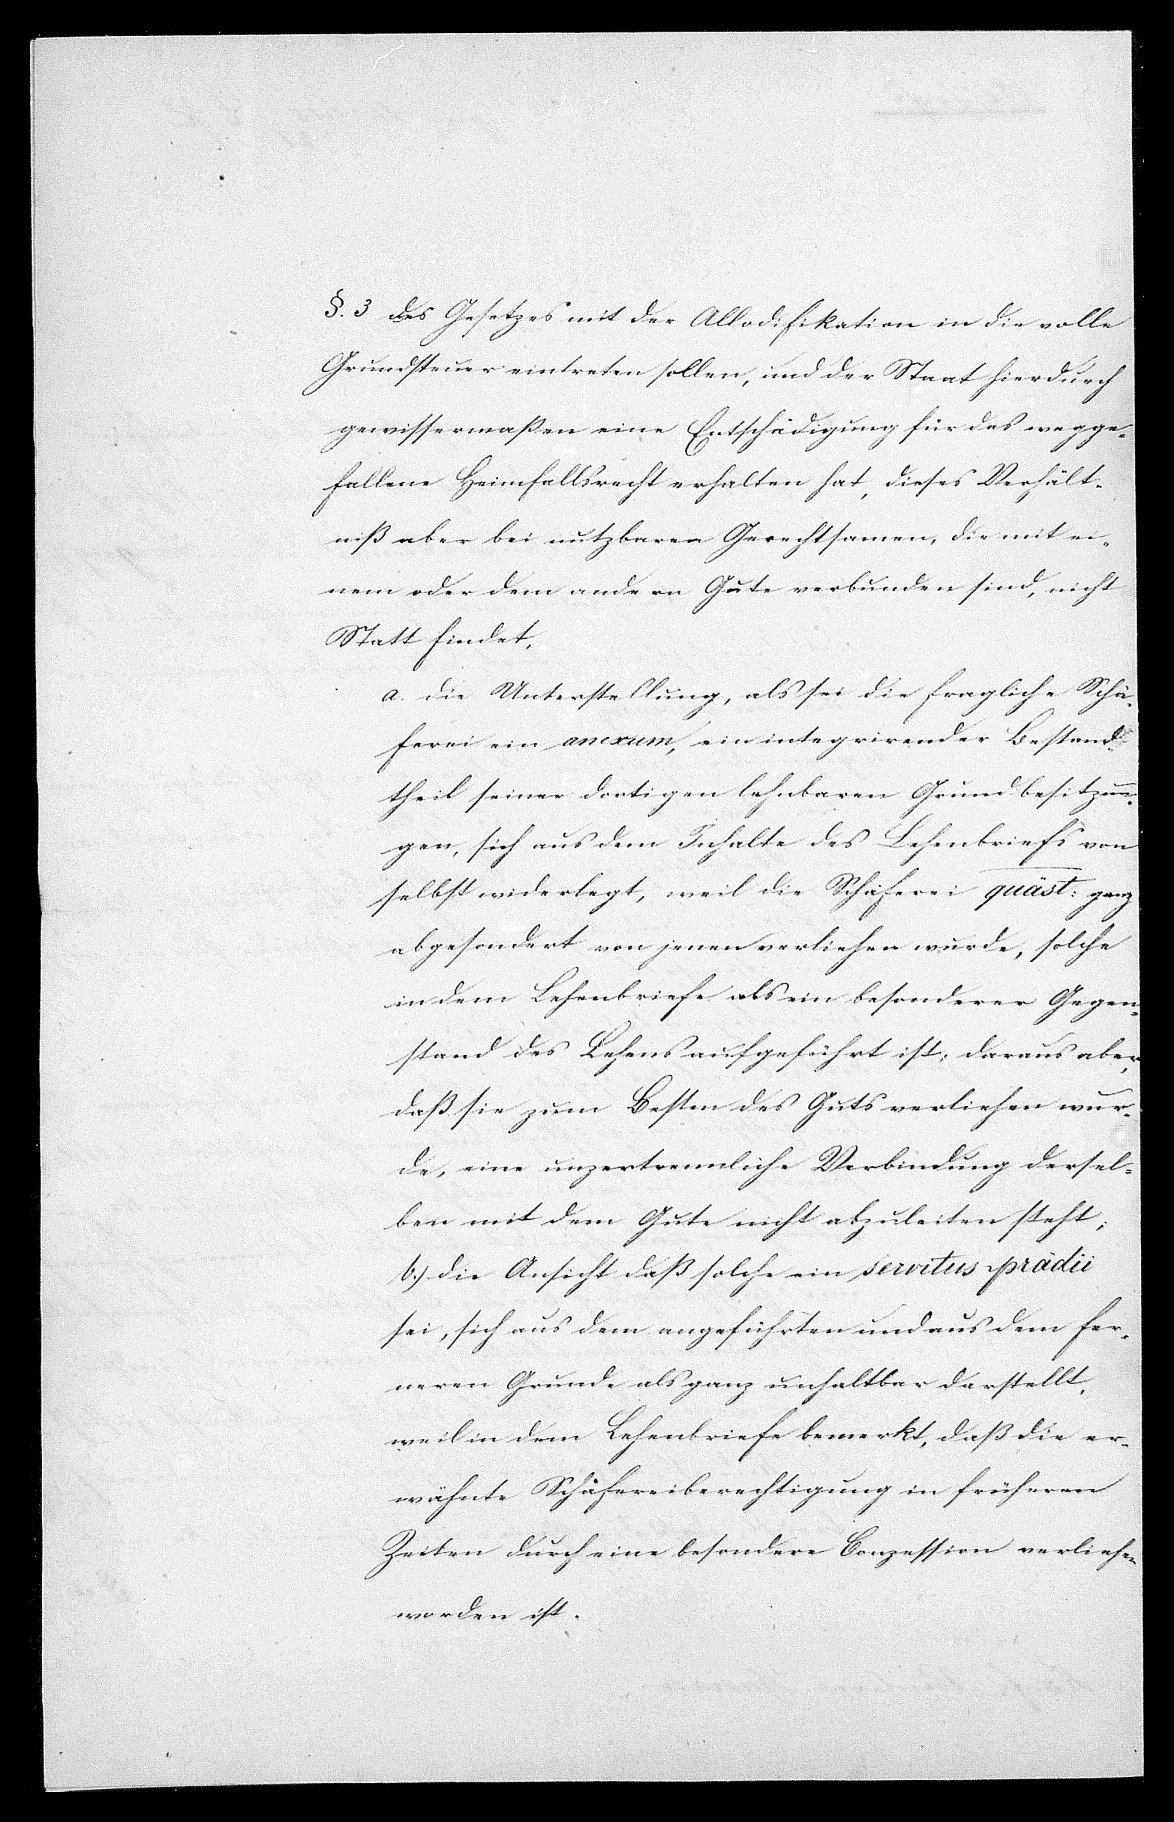 §. 3 des Gesetzes mit der Allodifikation in die volle
Grundsteuer eintreten sollen, und der Staat hierdurch
gewissermaßen eine Entschädigung für das wegge-
fallene Heimfallsrecht erhalten hat, dieses Verhält-
niß aber bei nutzbaren Gerechtsamen, die mit ei-
nem oder dem andern Gute verbunden sind, nicht
Statt findet,
a. die Unterstellung, als sei die fragliche Schä-
ferei ein anexum, ein integrirender Bestand-
theil seiner dortigen lehnbaren Grundbesitzun-
gen, sich aus dem Inhalte des Lehenbriefs von
selbst widerlegt, weil die Schäferei quäst: ganz
abgesondert von jenen verliehen wurde, solche
in dem Lehenbriefe als ein besonderer Gegen-
stand des Lehens aufgeführt ist; daraus aber,
daß sie zum Besten des Guts verliehen wur-
de, eine unzertrennliche Verbindung dersel-
ben mit dem Gute nicht abzuleiten steht;
b.) die Ansicht daß solche ein servitus prädii
sei, sich aus dem angeführten und aus dem fer-
neren Grunde als ganz unhaltbar darstellt,
weil in dem Lehenbriefe bemerkt, daß die er-
wähnte Schäfereiberechtigung in früheren
Zeiten durch eine besondere Conzession verliehen
worden ist.